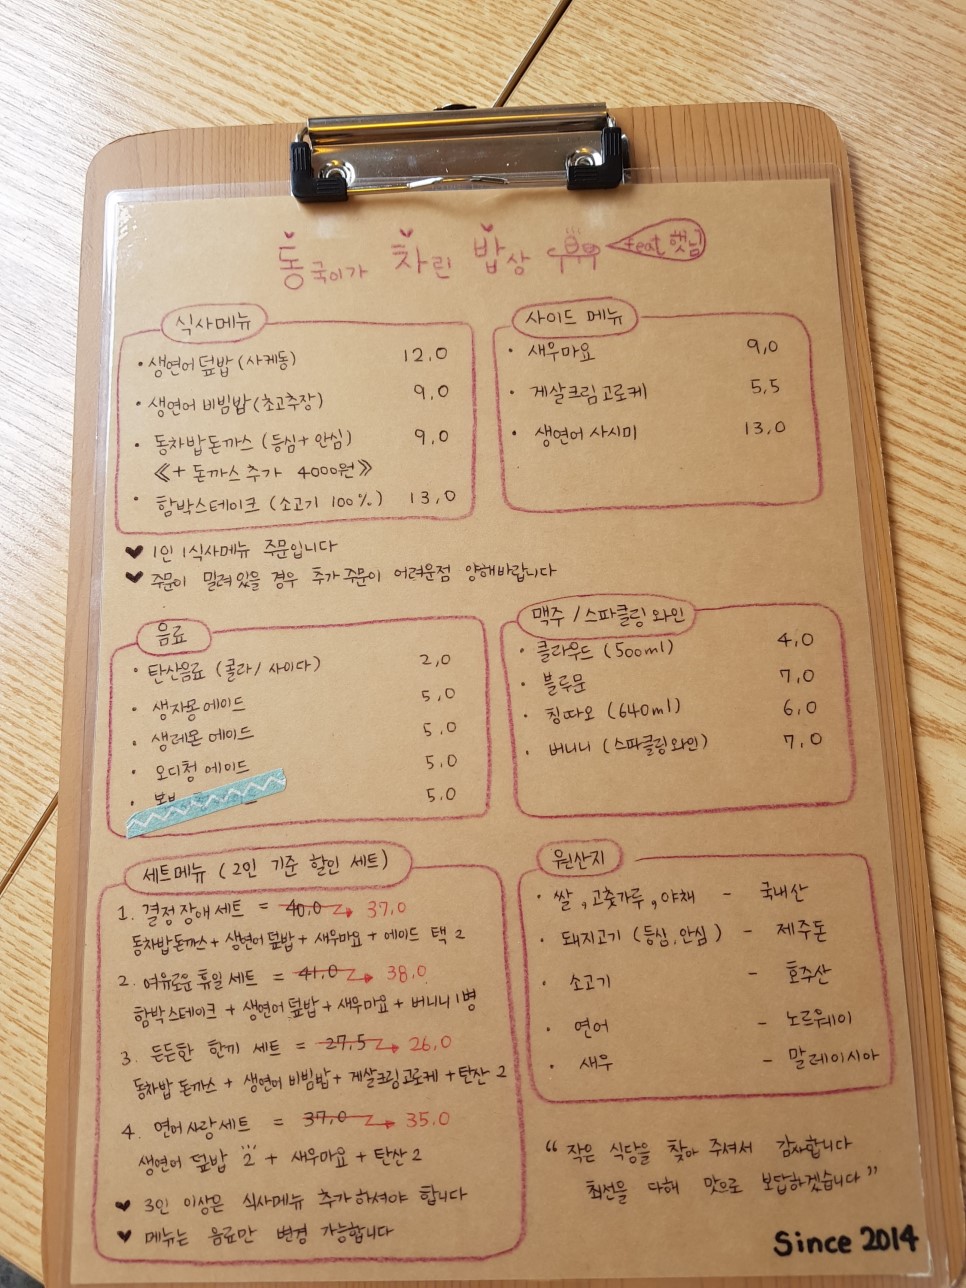 동국이가 차린 밥상 feat 햇님
식사메뉴
· 생연어 덮밥 (사케동) 12,0
· 생연어 비빔밥 (초고추장) 9,0
· 동차밥 돈까스 (등심 + 안심) 9,0
《+ 돈까스 추가 4000원》
· 함박스테이크 (소고기 100%) 13,0
사이드 메뉴
· 새우마요 9,0
· 게살크림고로케 5,5
· 생연어 사시미 13,0
♥ 1인 1식사메뉴 주문입니다
♥ 주문이 밀려있을 경우 추가주문이 어려운점 양해바랍니다
음료
· 탄산음료 (콜라 / 사이다) 2,0
· 생자몽에이드 5,0
· 생레몬 에이드 5,0
· 오디청 에이드 5,0
· 5,0
맥주 / 스파클링 와인
· 클라우드 (500ml) 4,0
· 블루문 7,0
· 칭따오 (640ml) 6,0
· 버니니 (스파클링와인) 7,0
세트메뉴 (2인 기준 할인 세트)
1. 결정장애 세트 = 40,0 → 37,0
동차밥돈까스 + 생연어 덮밥 + 새우마요 + 에이드 택 2
2. 여유로운 휴일 세트 = 41,0 → 38,0
함박스테이크 + 생연어 덮밥 + 새우마요 + 버니니 1병
3. 든든한 한끼 세트 = 27,5 → 26,0
동차밥 돈까스 + 생연어 비빔밥 + 게살크림고로케 + 탄산 2
4. 연어사랑세트 = 37,0 → 35,0
생연어 덮밥 2 + 새우마요 + 탄산 2
♥ 3인 이상은 식사메뉴 추가하셔야 합니다
♥ 메뉴는 음료만 변경 가능합니다
원산지
· 쌀, 고춧가루, 야채 - 국내산
· 돼지고기 (등심, 안심) - 제주돈
· 소고기 - 호주산
· 연어 - 노르웨이
· 새우 - 말레이시아
“ 작은 식당을 찾아 주셔서 감사합니다
최선을 다해 맛으로 보답하겠습니다 ”
Since 2014